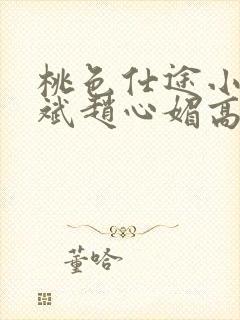 桃色仕途小
斌趙心媚高
董哈